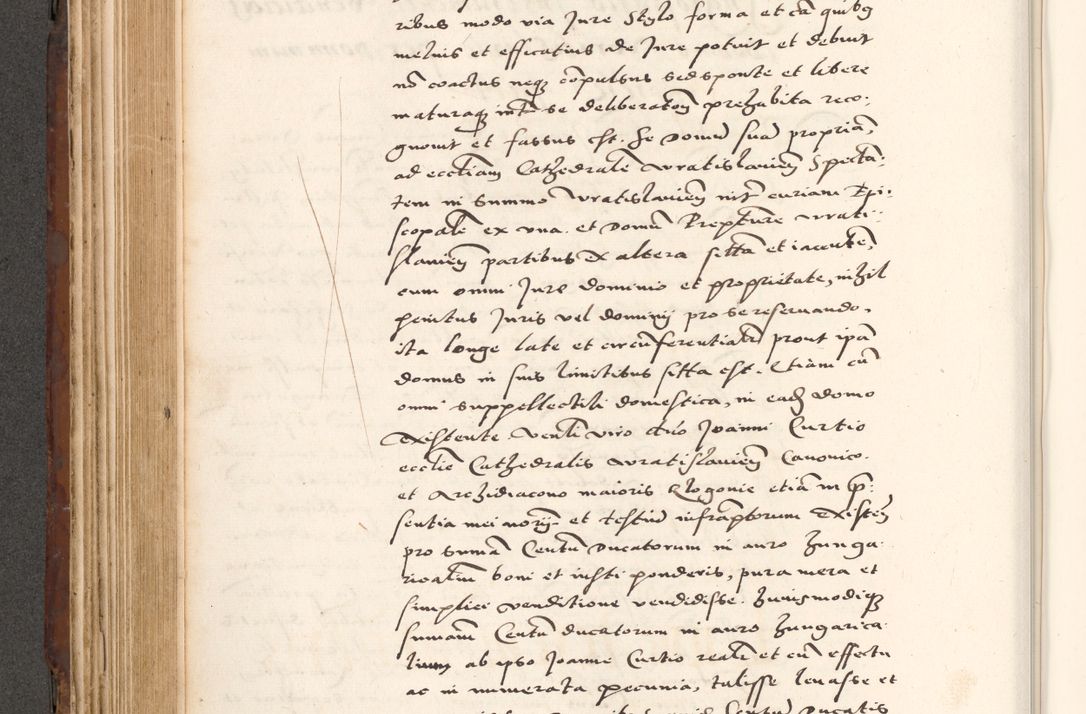 ribus modo via Jure Stylo forma et cā quibꝫ
melius et efficatius de Jure potuit et debuit
nō coactus neqꝫ cōpulsus sed sponte et libere
maturaqꝫ int̄ se deliberatōn prehabita reco-
gnovit et fassus est. Se Domū suā propriā,
ad eccl̄iam Cathedralē wratislavien̄ Spectā-
tem in Summo wratislavien̄ int̄ curiam Epi-
scopalē ex vna et Domū Prep̄ture wrati-
slavien̄ partibus Ex altera sittā et iacentē,
cum omni Jure dominio et proprietate, nihil
penitus Juris vel dominij pro se reservando,
ita longe late et circūferentialr̄ prout ip̄a
domus in suis limitibus sitta est. Etiam cū
omni suppellectili domestica, in eadꝫ domo
Existente. Ven̄li viro dn̄o Joanni Curtio
eccl̄ie Cathedralis wratislavien̄ Canonico.
et Archidiacono maioris Glogonie etiā in p̄-
sentia mei nor̄ij et testiū infrap̄torum Existen̄
pro sumā Centū Ducatorum in auro hunga-
ricaliū boni et iusti ponderis, pura mera et
simplici venditione vendidisse. huiusmodiqꝫ
sumam Centū ducatorum in auro hungarica-
lium ab ipso Joanne Curtio realr̄ et cū effectu
ac in numerata pecunia, tulisse levasse et
Centū Ducatis